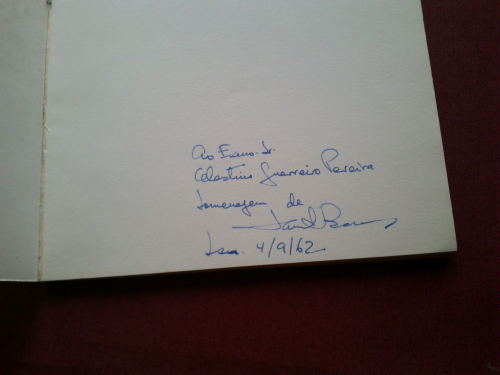 Ao Exmo. Sr.
Celestino Guerreiro Pereira
homenagem de
4/9/62